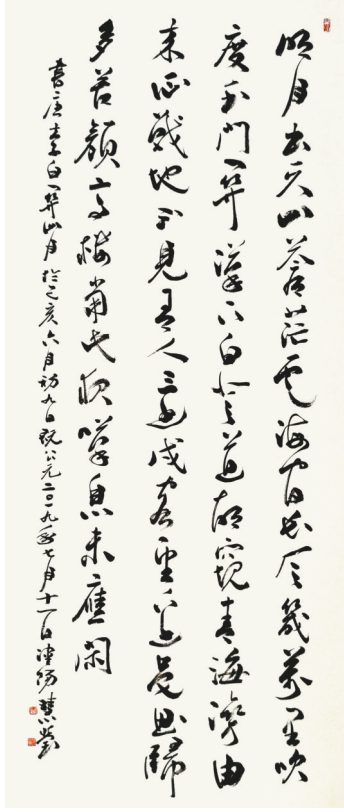 明月出天山蒼茫雲海間長風幾萬里吹
度玉門關漢下白登道胡窺青海灣由
來征戰地不見有人還戍客望邊邑思歸
多苦顏高樓當此夜嘆息未應閑
書唐李白關山月於己亥六月初九日既公元二〇一九年七月十一日